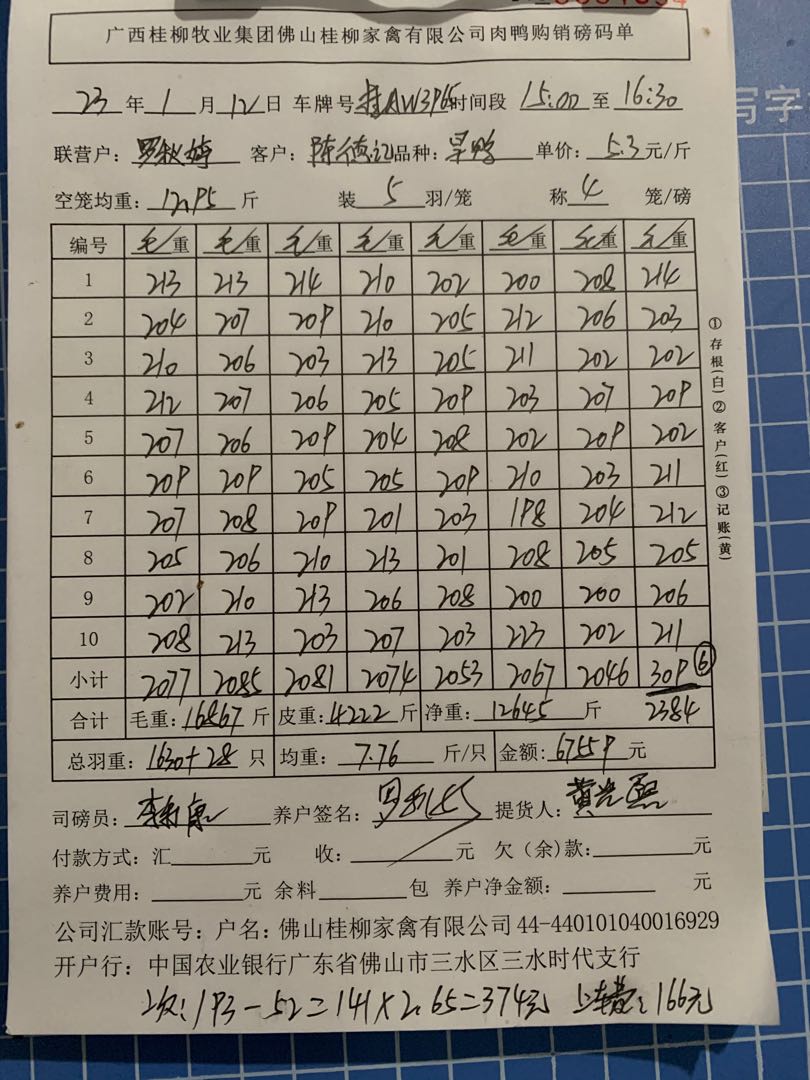 广西桂柳牧业集团佛山桂柳家禽有限公司肉鸭购销磅码单
23年1月12日 车牌号桂AW3965时间段15:00至16:30
联营户:罗秋婷 客户:陈德记品种:旱鸭 单价:5.3元/斤
空笼均重:12.95斤 装5羽/笼 称4笼/磅
编号 毛/重 毛/重 毛/重 毛/重 毛/重 毛/重 毛/重 毛/重
1 213 213 214 210 202 200 208 214
2 204 207 209 210 205 212 206 203
3 210 206 203 213 205 211 202 202
4 212 207 206 205 209 203 207 209
5 207 206 209 204 208 202 209 202
6 209 209 205 205 209 210 203 211
7 207 208 209 201 203 198 204 212
8 205 206 210 213 201 208 205 205
9 202 210 213 206 208 200 200 206
10 208 213 203 207 203 223 202 211
小计 2077 2085 2081 2074 2053 2067 2046 309 ⑥
合计 毛重:16867斤 皮重:4222斤 净重:12645斤 2384
总羽重:1630+28只 均重:7.76斤/只 金额:67559元
司磅员: 养户签名: 提货人:
付款方式:汇 元 收: 元 欠(余)款:
养户费用: 元 余料 包 养户净金额: 元
公司汇款账号:户名:佛山桂柳家禽有限公司 44-440101040016929
开户行:中国农业银行广东省佛山市三水区三水时代支行
193-52=141×2.65=374元 上车费:166元
①存根(白)②客户(红)③记账(黄)
写字